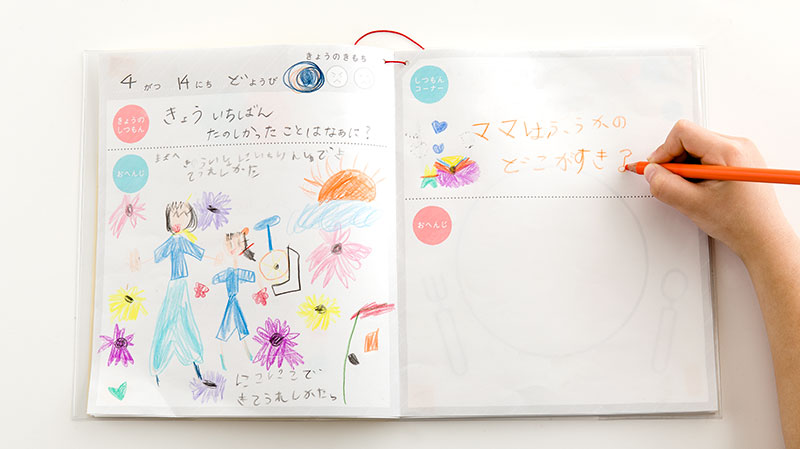 きょうのきもち
4 がつ 14 にち どようび
きょうの
しつもん
きょう いちばん
たのしかった ことはなぁに?
おへんじ
ままへ
てうれしかた
にこにこで
きてうれしかたよ
しつもん
コーナー
ママはふうかの
どこがすき?
おへんじ